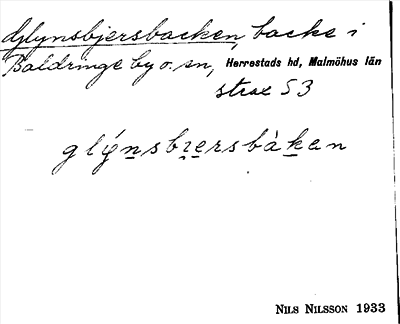 Glynsbjersbacken, backe i
Baldringe by o. sn, Herrestads hd, Malmöhus län
strax S 3
glýnsbɪersbàken
NILS NILSSON 1933